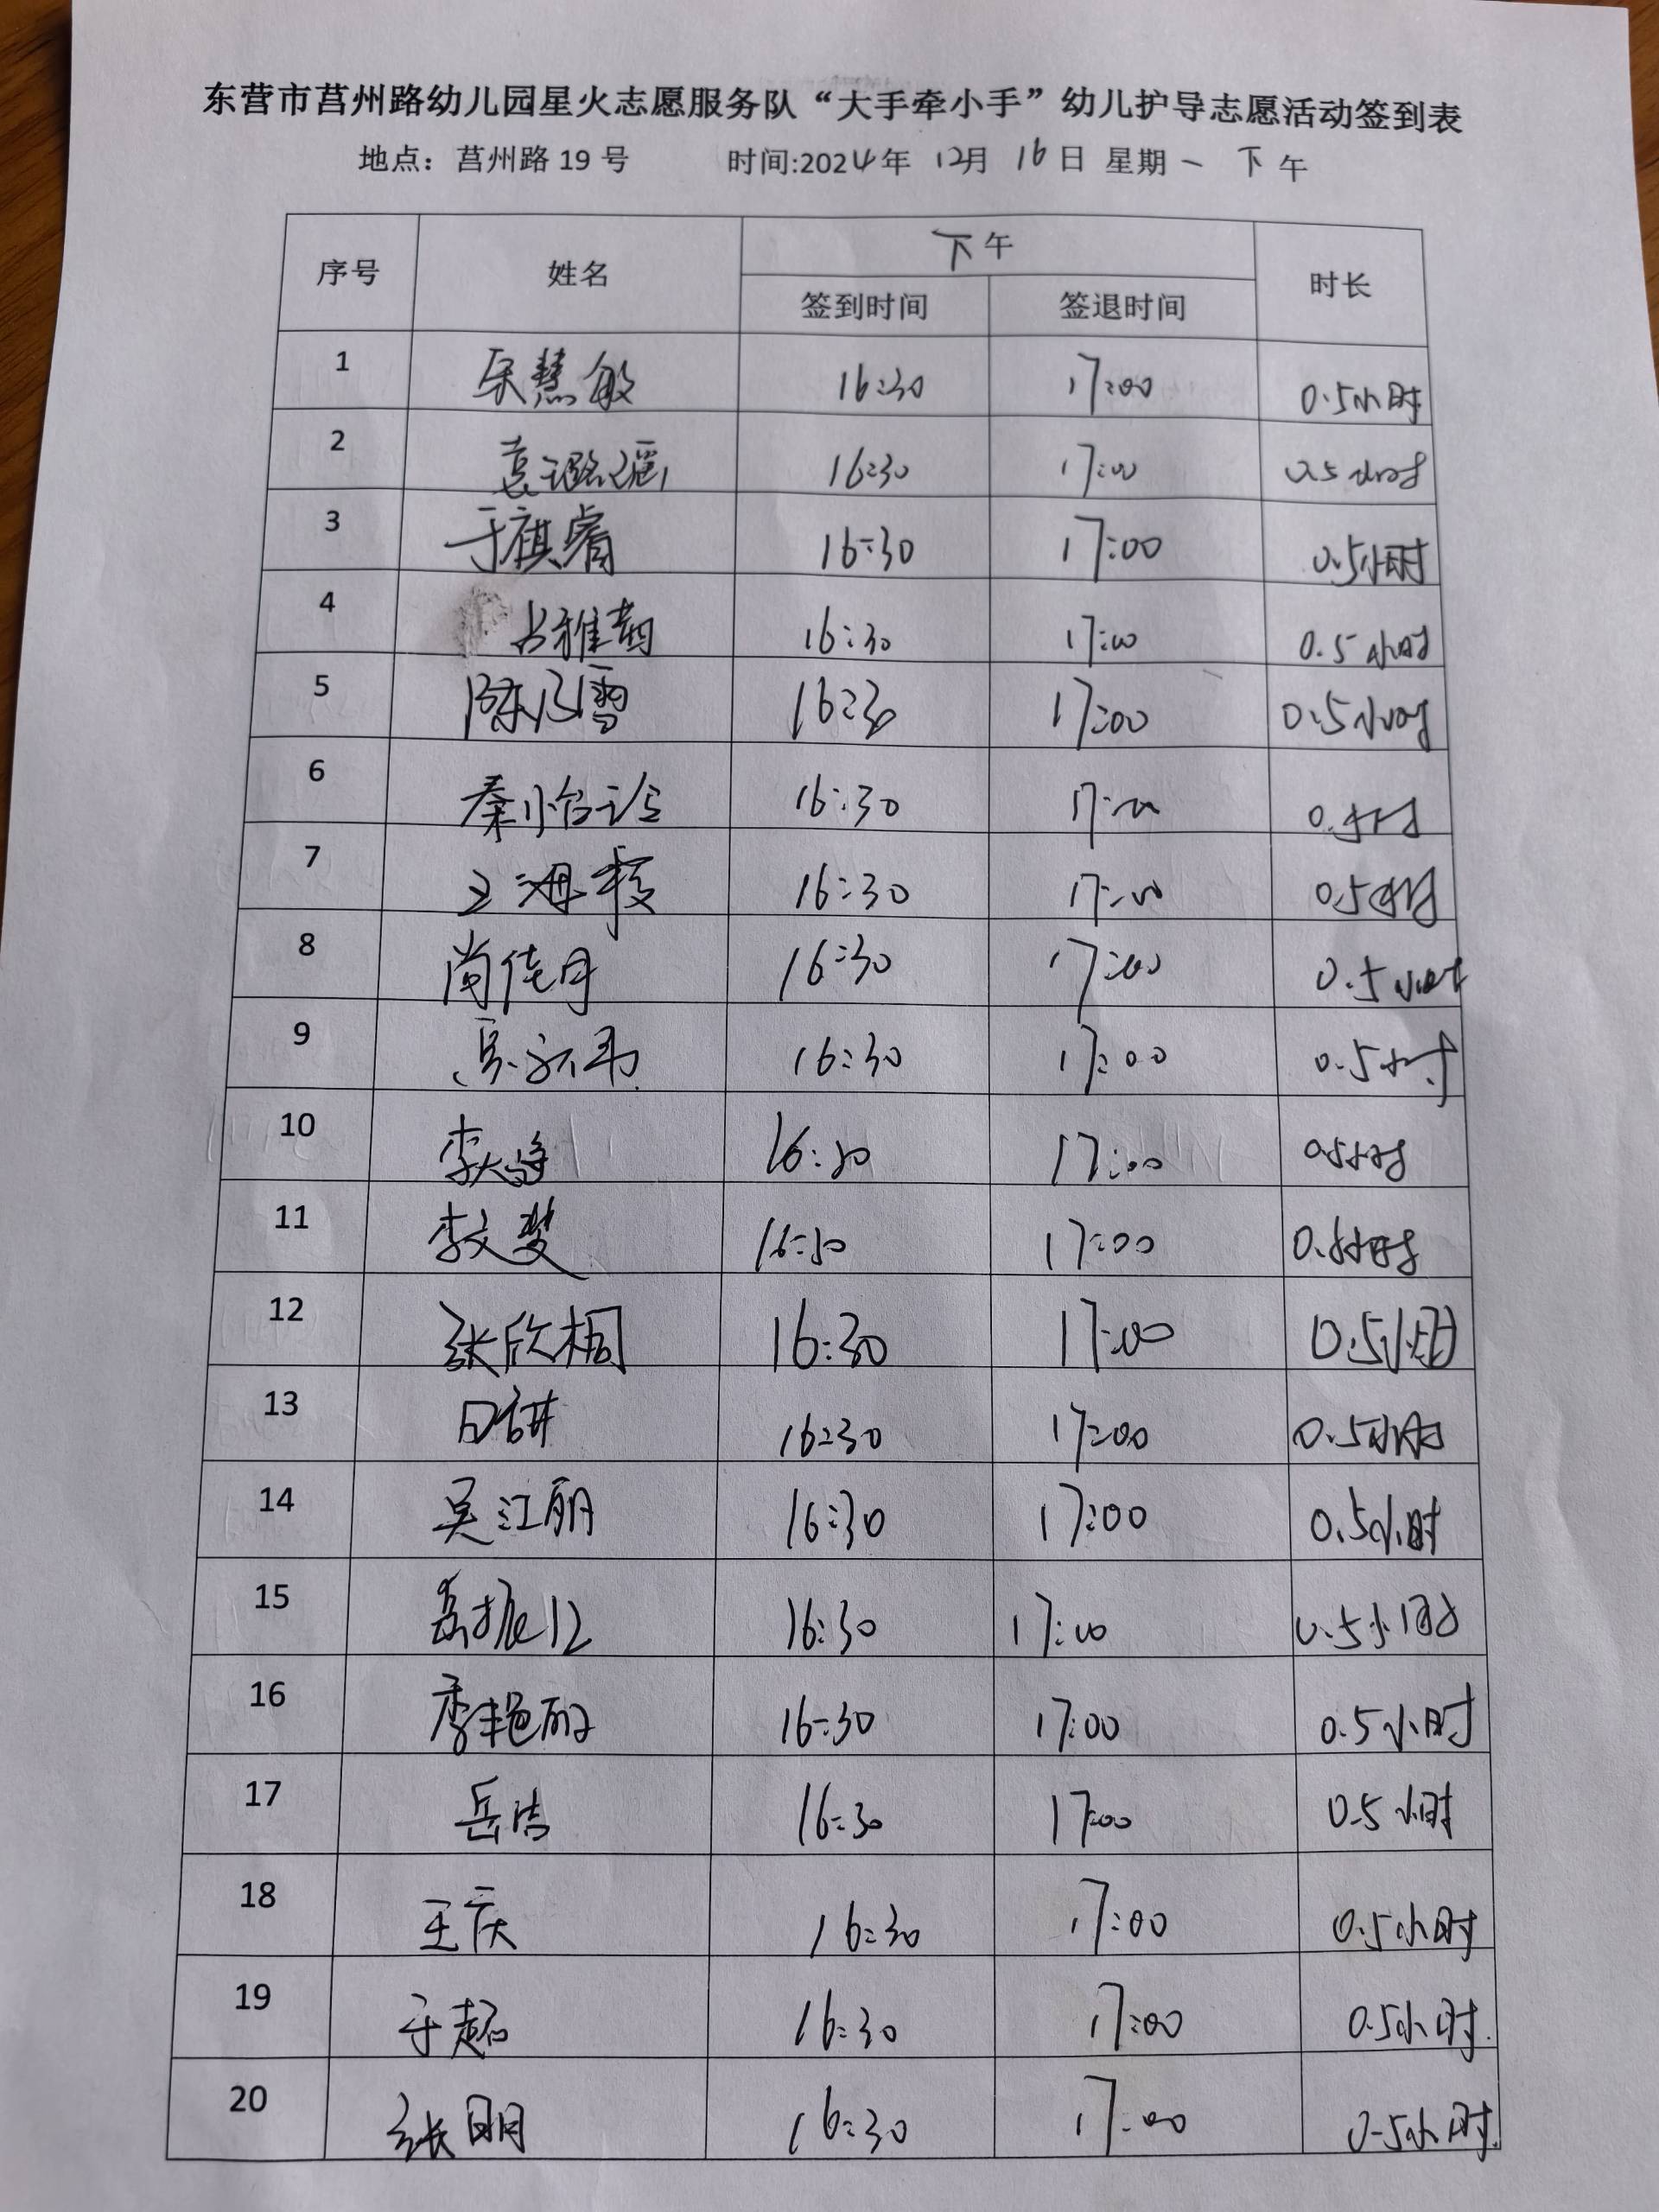 东营市莒州路幼儿园星火志愿服务队“大手牵小手”幼儿护导志愿活动签到表
地点：莒州路 19 号 时间:2024年 12月 16日 星期一 下午
序号 姓名 下午 时长
签到时间 签退时间
1 宋慧敏 16:30 17:00 0.5小时
2 葛璐瑶 16:30 17:00 0.5小时
3 于祺睿 16:30 17:00 0.5小时
4 16:30 17:00 0.5小时
5 16:30 17:00 0.5小时
6 秦怡 16:30 17:00 0.5小时
7 王海 16:30 17:00 0.5小时
8 尚佳月 16:30 17:00 0.5小时
9 16:30 17:00 0.5小时
10 李 16:30 17:00 0.5小时
11 李文梦 16:30 17:00 0.5小时
12 张欣桐 16:30 17:00 0.5小时
13 16:30 17:00 0.5小时
14 吴江丽 16:30 17:00 0.5小时
15 16:30 17:00 0.5小时
16 李艳丽 16:30 17:00 0.5小时
17 岳洁 16:30 17:00 0.5小时
18 王庆 16:30 17:00 0.5小时
19 于超 16:30 17:00 0.5小时
20 张明 16:30 17:00 0.5小时